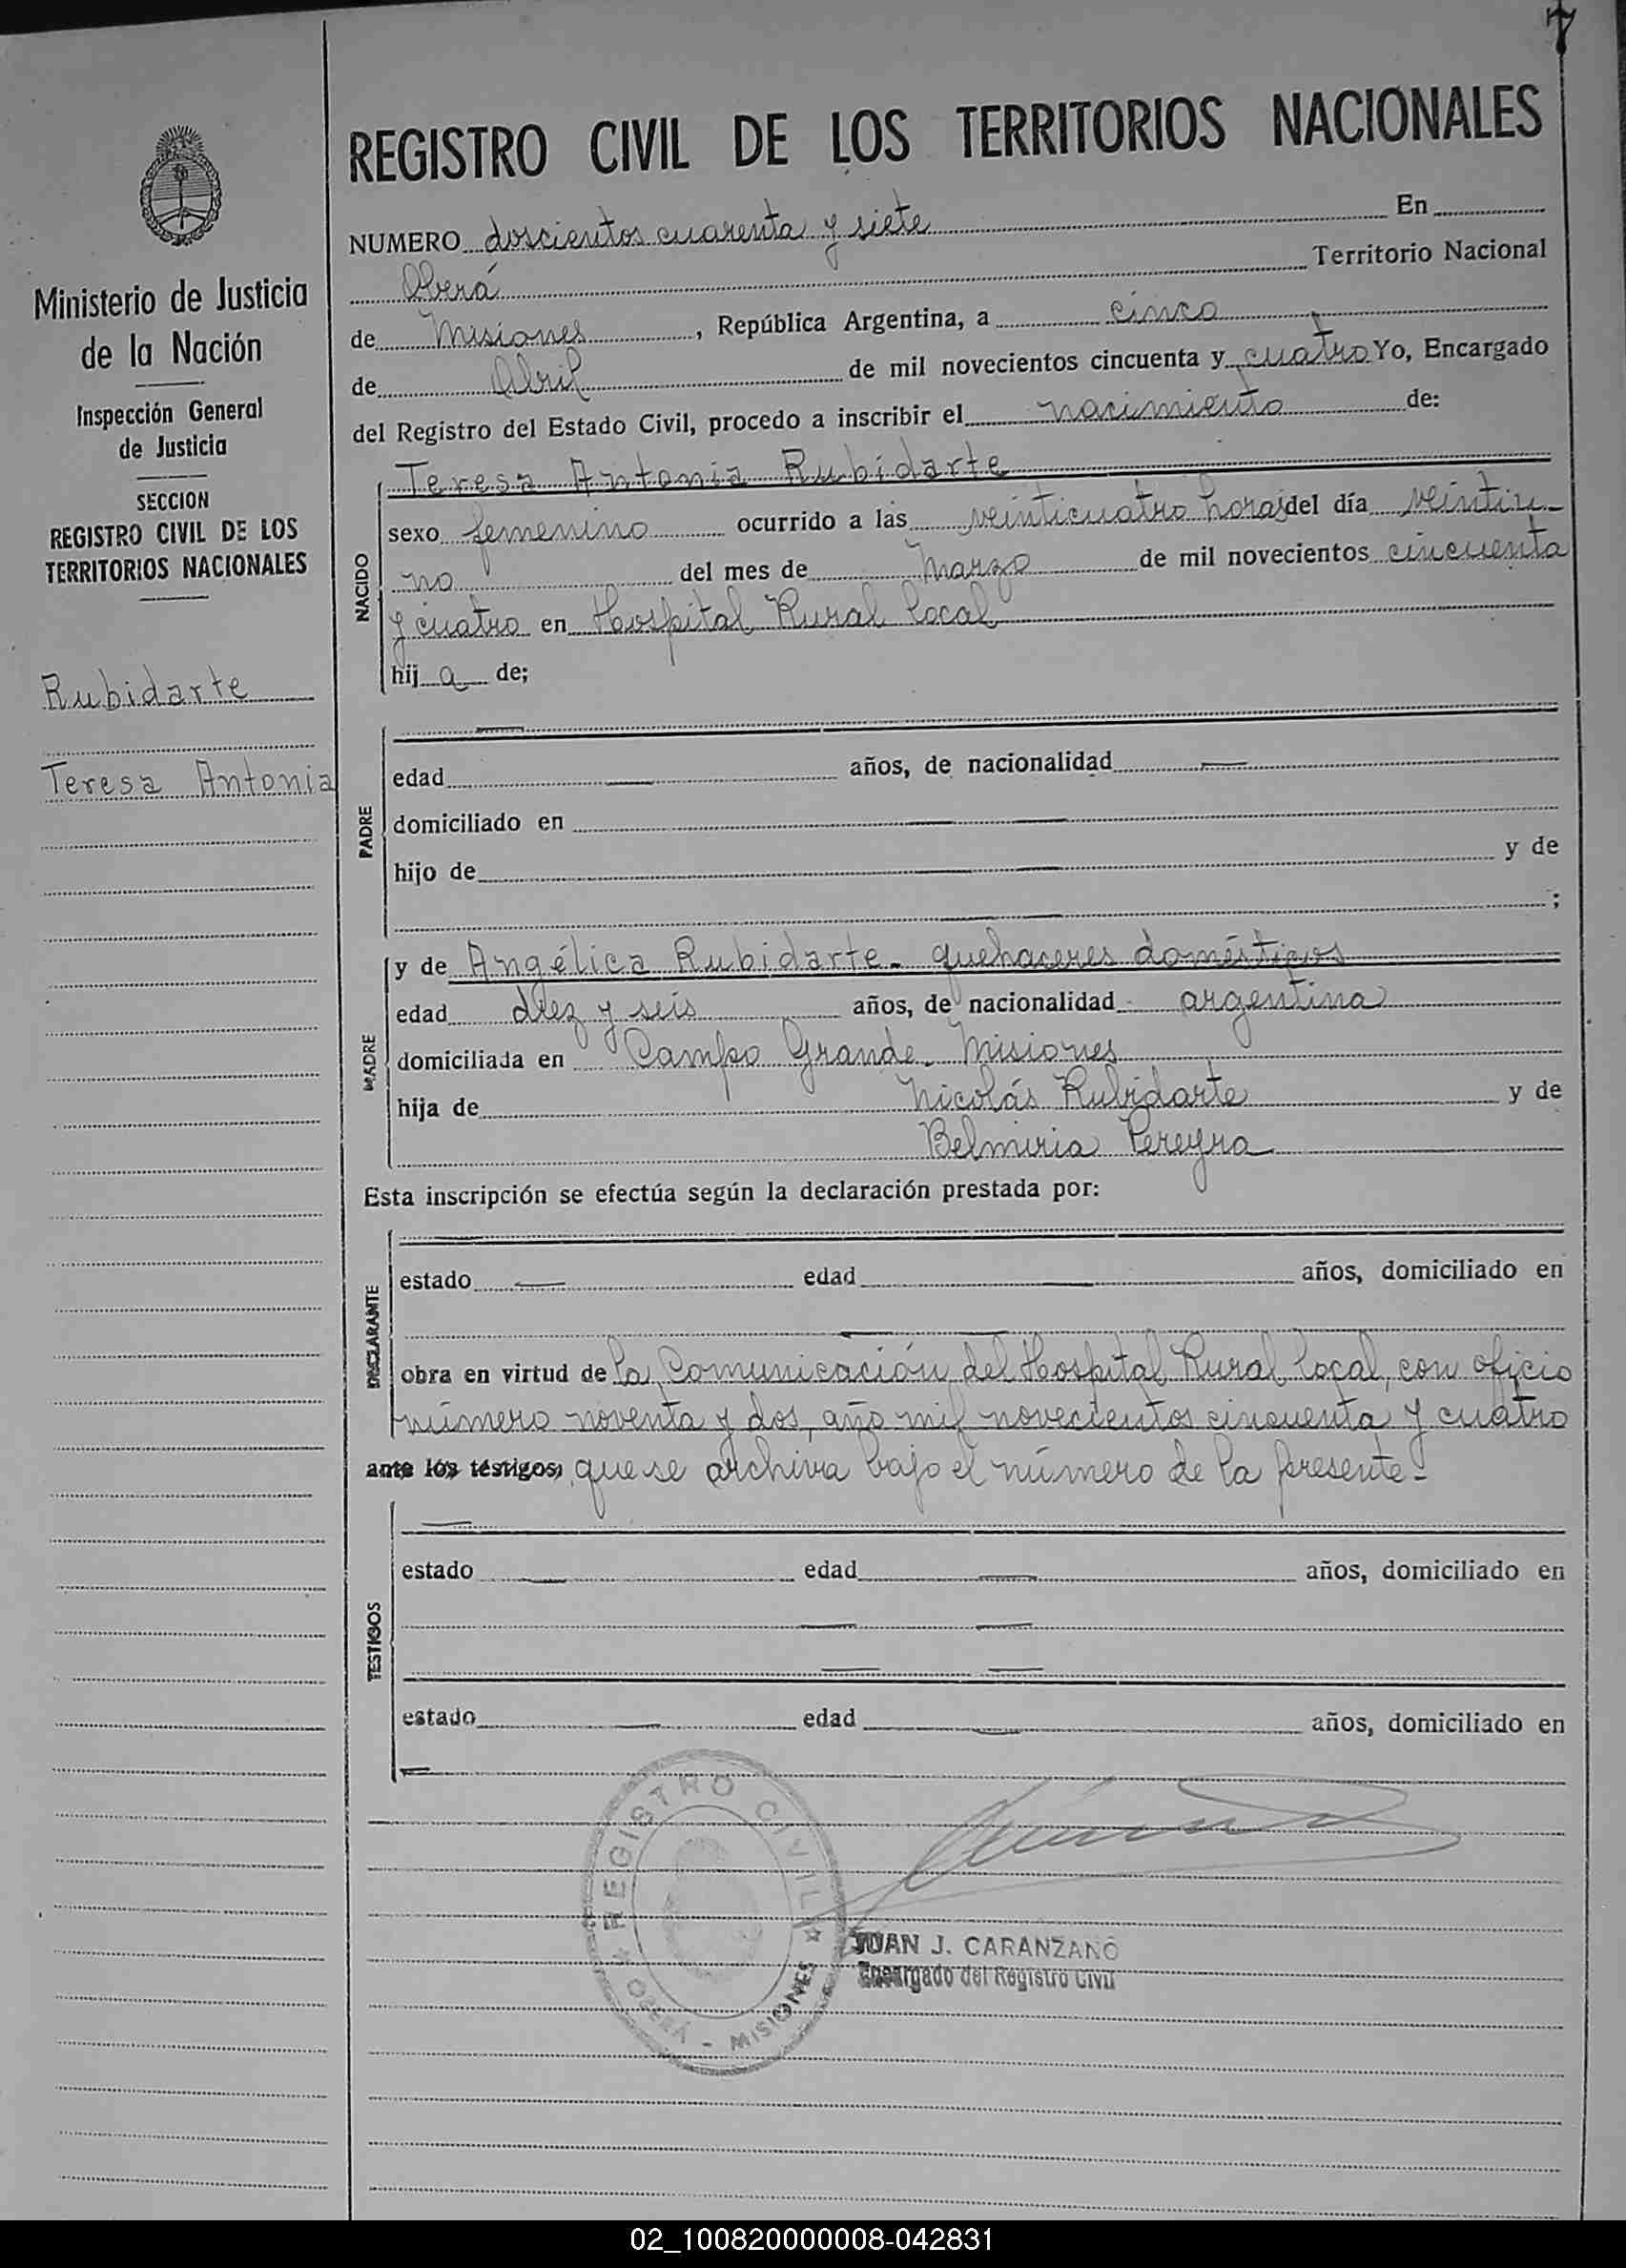 7
REGISTRO CIVIL DE LOS TERRITORIOS NACIONALES
Ministerio de Justicia
de la Nación
Inspección General
de Justicia
SECCION
REGISTRO CIVIL DE LOS
TERRITORIOS NACIONALES
Rubidarte
Teresa Antonia
NUMERO doscientos cuarenta y siete En
Oberá Territorio Nacional
de Misiones, República Argentina, a cinco
de Abril de mil novecientos cincuenta y cuatro Yo, Encargado
del Registro del Estado Civil, procedo a inscribir el nacimiento de:
NACIDO
Teresa Antonia Rubidarte
sexo femenino ocurrido a las veinticuatro horas del día veintiu-
no del mes de Marzo de mil novecientos cincuenta
y cuatro en Hospital Rural local
hija de;
PADRE
edad años, de nacionalidad
domiciliado en
hijo de y de
;
MADRE
y de Angélica Rubidarte - quehaceres domésticos
edad diez y seis años, de nacionalidad argentina
domiciliada en Campo Grande - Misiones
hija de Nicolás Rubidarte y de
Belmiria Pereyra
Esta inscripción se efectúa según la declaración prestada por:
DECLARANTE
estado edad años, domiciliado en
obra en virtud de la Comunicación del Hospital Rural local, con oficio
número noventa y dos, año mil novecientos cincuenta y cuatro
ante los testigos, que se archiva bajo el número de la presente -
TESTIGOS
estado edad años, domiciliado en
estado edad años, domiciliado en
REGISTRO CIVIL
OBERÁ - MISIONES
JUAN J. CARANZANO
Encargado del Registro Civil
02_100820000008-042831